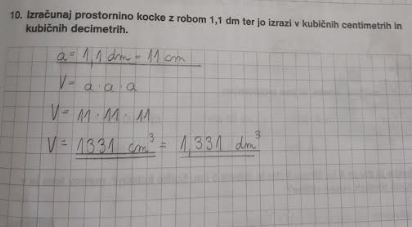 10. Izračunaj prostornino kocke z robom 1,1 dm ter jo izrazi v kubičnih centimetrih in
kubičnih decimetrih.
a = 1,1 dm = 11 cm
V = a · a · a
V = 11 · 11 · 11
V = 1331 cm³ = 1,331 dm³